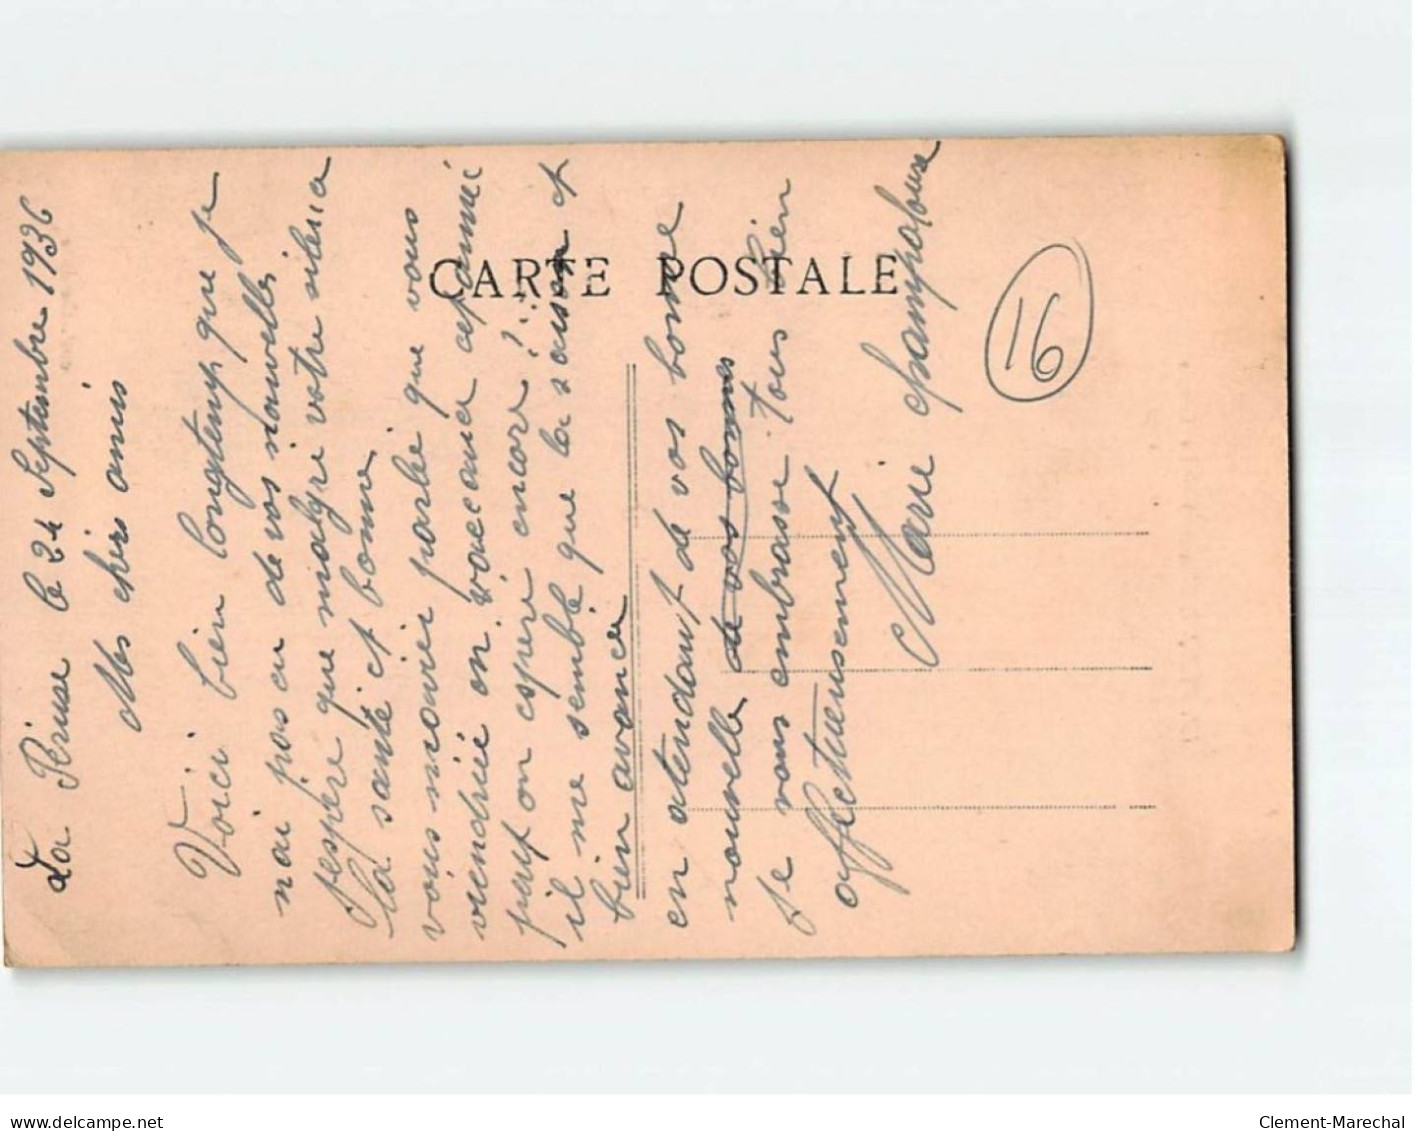 La Péruse le 24 Septembre 1936
Mes chers amis
Voici bien longtemps que je
nai pas eu de vos nouvelles
jespère que malgré votre silence
la santé est bonne
vous m'aviez parlé que vous
viendriez en vacances cet année
peut on espéré encore ???
il me semble que la saison est
bien avancée
en atendant de vos bonne
nouvelle de vos bonnes
je vous embrasse tous bien
affectueusement
Marie
CARTE POSTALE
16
delcampe.net
Clement-Marechal